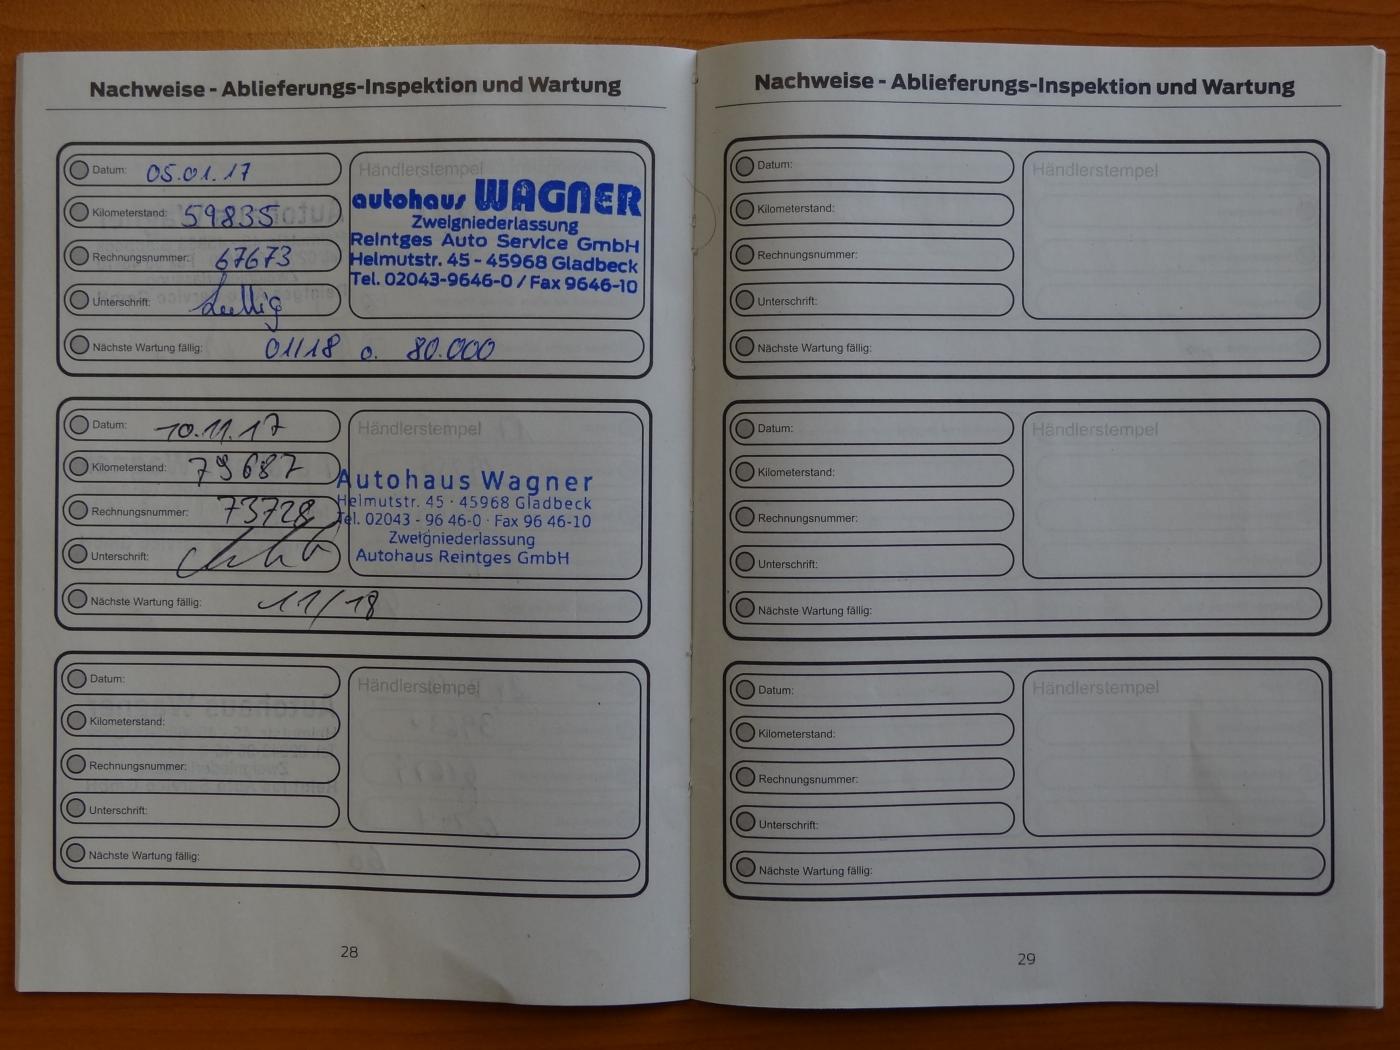 Nachweise - Ablieferungs-Inspektion und Wartung
Datum: 05.01.17
Kilometerstand: 59835
Rechnungsnummer: 67673
Unterschrift:
Nächste Wartung fällig: 01/18 o. 80.000
Händlerstempel
autohaus WAGNER
Zweigniederlassung
Reintges Auto Service GmbH
Helmutstr. 45 - 45968 Gladbeck
Tel. 02043-9646-0 / Fax 9646-10
Datum: 10.11.17
Kilometerstand: 79687
Rechnungsnummer: 73728
Unterschrift:
Nächste Wartung fällig: 11/18
Händlerstempel
Autohaus Wagner
Helmutstr. 45 · 45968 Gladbeck
Tel. 02043 - 96 46-0 · Fax 96 46-10
Zweigniederlassung
Autohaus Reintges GmbH
Datum:
Kilometerstand:
Rechnungsnummer:
Unterschrift:
Nächste Wartung fällig:
Händlerstempel
28
Nachweise - Ablieferungs-Inspektion und Wartung
Datum:
Kilometerstand:
Rechnungsnummer:
Unterschrift:
Nächste Wartung fällig:
Händlerstempel
Datum:
Kilometerstand:
Rechnungsnummer:
Unterschrift:
Nächste Wartung fällig:
Händlerstempel
Datum:
Kilometerstand:
Rechnungsnummer:
Unterschrift:
Nächste Wartung fällig:
Händlerstempel
29